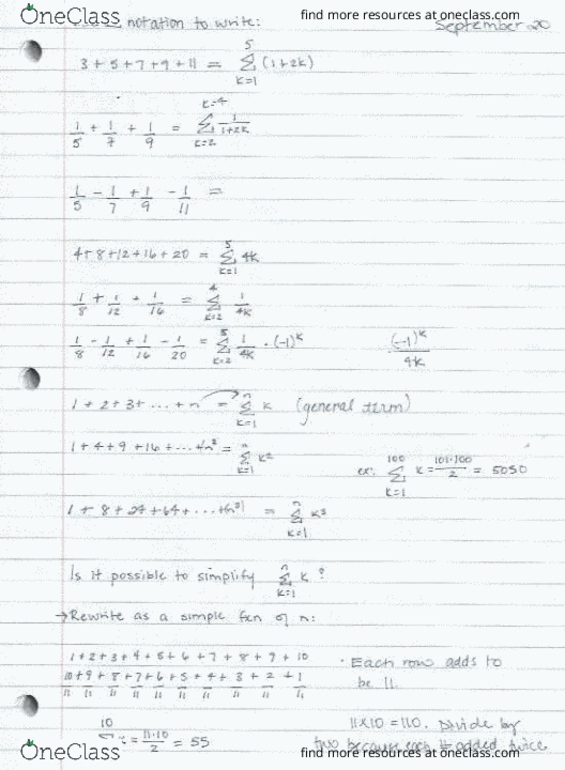 OneClass
find more resources at oneclass.com
notation to write:
September 20
3 + 5 + 7 + 9 + 11 = 5 Σ k=1 (1+2k)
1/5 + 1/7 + 1/9 = k=4 Σ k=2 1/1+2k
1/5 - 1/7 + 1/9 - 1/11 =
4 + 8 + 12 + 16 + 20 = 5 Σ k=1 4k
1/8 + 1/12 + 1/16 = 4 Σ k=2 1/4k
1/8 - 1/12 + 1/16 - 1/20 = 5 Σ k=2 1/4k · (-1)^k (-1)^k/4k
1 + 2 + 3 + ... + n = n Σ k=1 k (general term)
1 + 4 + 9 + 16 + ... + n² = n Σ k=1 k²
ex: 100 Σ k=1 k = 101·100/2 = 5050
1 + 8 + 27 + 64 + ... + n³ = n Σ k=1 k³
Is it possible to simplify n Σ k=1 k ?
→ Rewrite as a simple fxn of n:
1 + 2 + 3 + 4 + 5 + 6 + 7 + 8 + 9 + 10
10 + 9 + 8 + 7 + 6 + 5 + 4 + 3 + 2 + 1
11 11 11 11 11 11 11 11 11 11
· Each row adds to
be 11.
10 Σ = 11·10/2 = 55
11 x 10 = 110. Divide by
two because each # added twice
OneClass
find more resources at oneclass.com